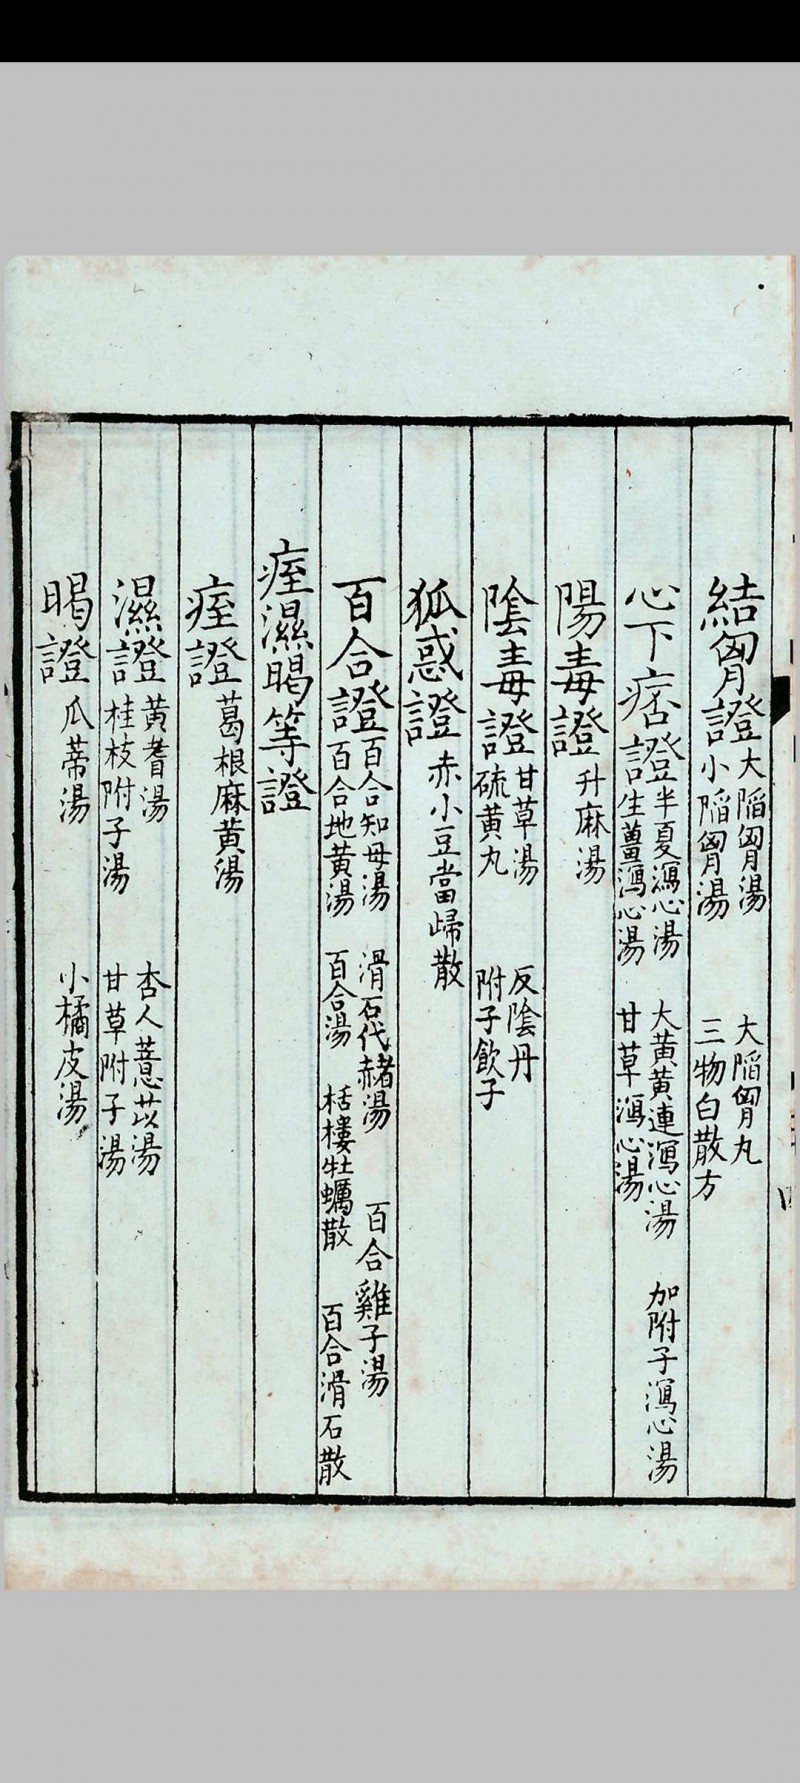 結胷證大陷胷湯　大陷胷丸
小陷胷湯　三物白散方
心下痞證半夏瀉心湯　大黃黃連瀉心湯　加附子瀉心湯
生薑瀉心湯　甘草瀉心湯
陽毒證升麻湯
陰毒證甘草湯　反陰丹
硫黃丸　附子飲子
狐惑證赤小豆當歸散
百合證百合知母湯　滑石代赭湯　百合雞子湯
百合地黃湯　百合湯　栝樓牡蠣散　百合滑石散
痓濕暍等證
痓證葛根麻黃湯
濕證黃耆湯　杏人薏苡湯
桂枝附子湯　甘草附子湯
暍證瓜蒂湯　小橘皮湯